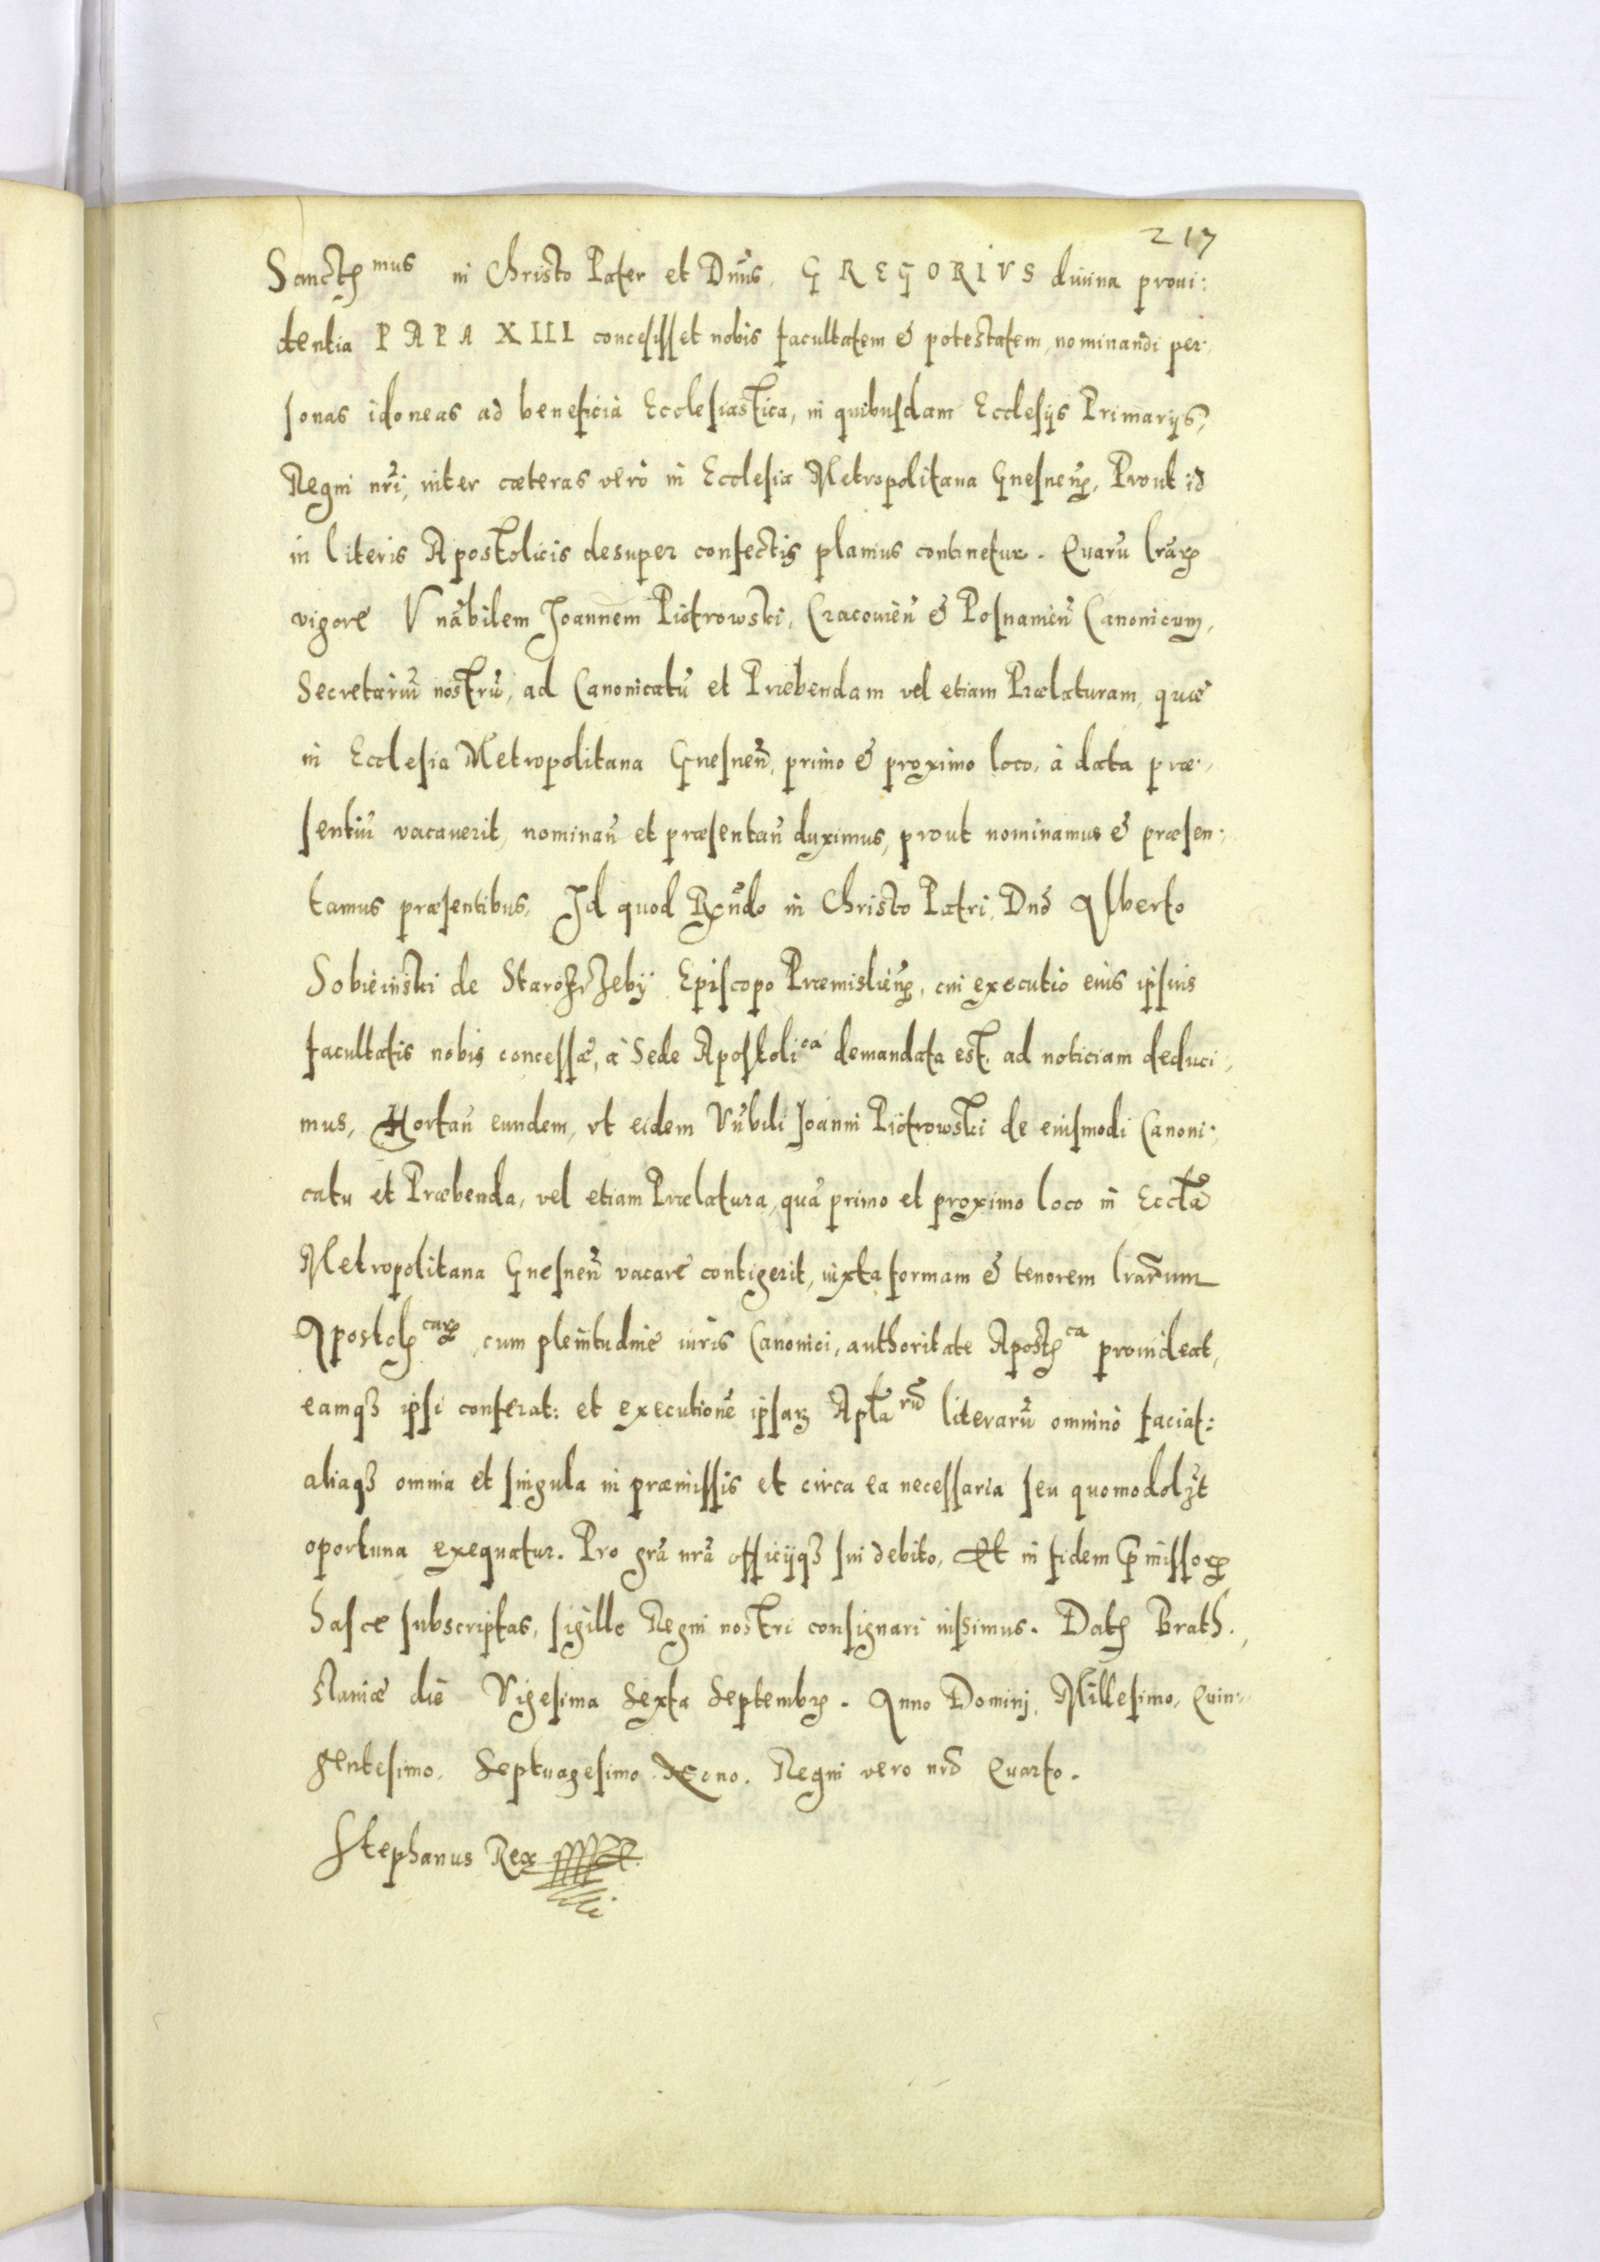 217
Sanctꝭmus in Christo Pater et Dñus, GREGORIVS diuina proui:
dentia PAPA XIII concesisset nobis facultatem & potestatem, nominandi per,
sonas idoneas ad beneficia Ecclesiastica, in quibusdam Ecclesijs Primarijs,
Regni nr̃i, inter cæteras vero in Ecclesia Metropolitana Gnesneñ, Prout id
in literis Apostolicis desuper confectis planius continetur. Quarũ lr̃aꝝ
vigore Vnãbilem Joannem Piotrowski, Cracouieñ & Posnanieñ Canonicum,
Secretariũ nostrũ, ad Canonicatũ et Præbendam vel etiam Prælaturam, quæ
in Ecclesia Metropolitana Gnesneñ, primo & proximo loco, à data præ,
sentiũ vacauerit, nominañ et præsentañ duximus, prout nominamus & præsen,
tamus præsentibus, Id quod Rx̃ndo in Christo Patri, Dnõ Alberto
Sobieiuski de Starozrzeby Episcopo Præmislieñ, cui executio eius ipsius
facultatis nobis concessæ, à Sede Apostolica demandata est, ad noticiam deduci,
mus, Hortañ eundem, vt eidem Vñbili Joanni Piotrowski de eiusmodi Canoni,
catu et Præbenda, vel etiam Prælatura, quã primo et proximo loco in Eccl̃a
Metropolitana Gnesneñ vacare contigerit, iuxta formam & tenorem lr̃arum
Apostolꝭcarꝝ, cum plenitudine iuris Canonici, authoritate Apostꝭca prouideat,
eamqꝫ ipsi conferat: et executionẽ ipsaꝝ Apl̃arũ literarũ omnino faciat:
aliaqꝫ omnia et singula in præmissis et circa ea necessaria seu quomodolꝫt
oportuna exequatur. Pro gr̃a nr̃a officijqꝫ sui debito, Et in fidem p̃missoꝝ
hasce subscriptas, sigillo Regni nostri consignari iussimus. Datꝭ Brath.,
slauiæ die Vigesima Sexta Septembrꝭ. Anno Domini, Millesimo, Quin,
gentesimo, Septuagesimo Nono. Regni vero nrõ Quarto.
Stephanus Rex